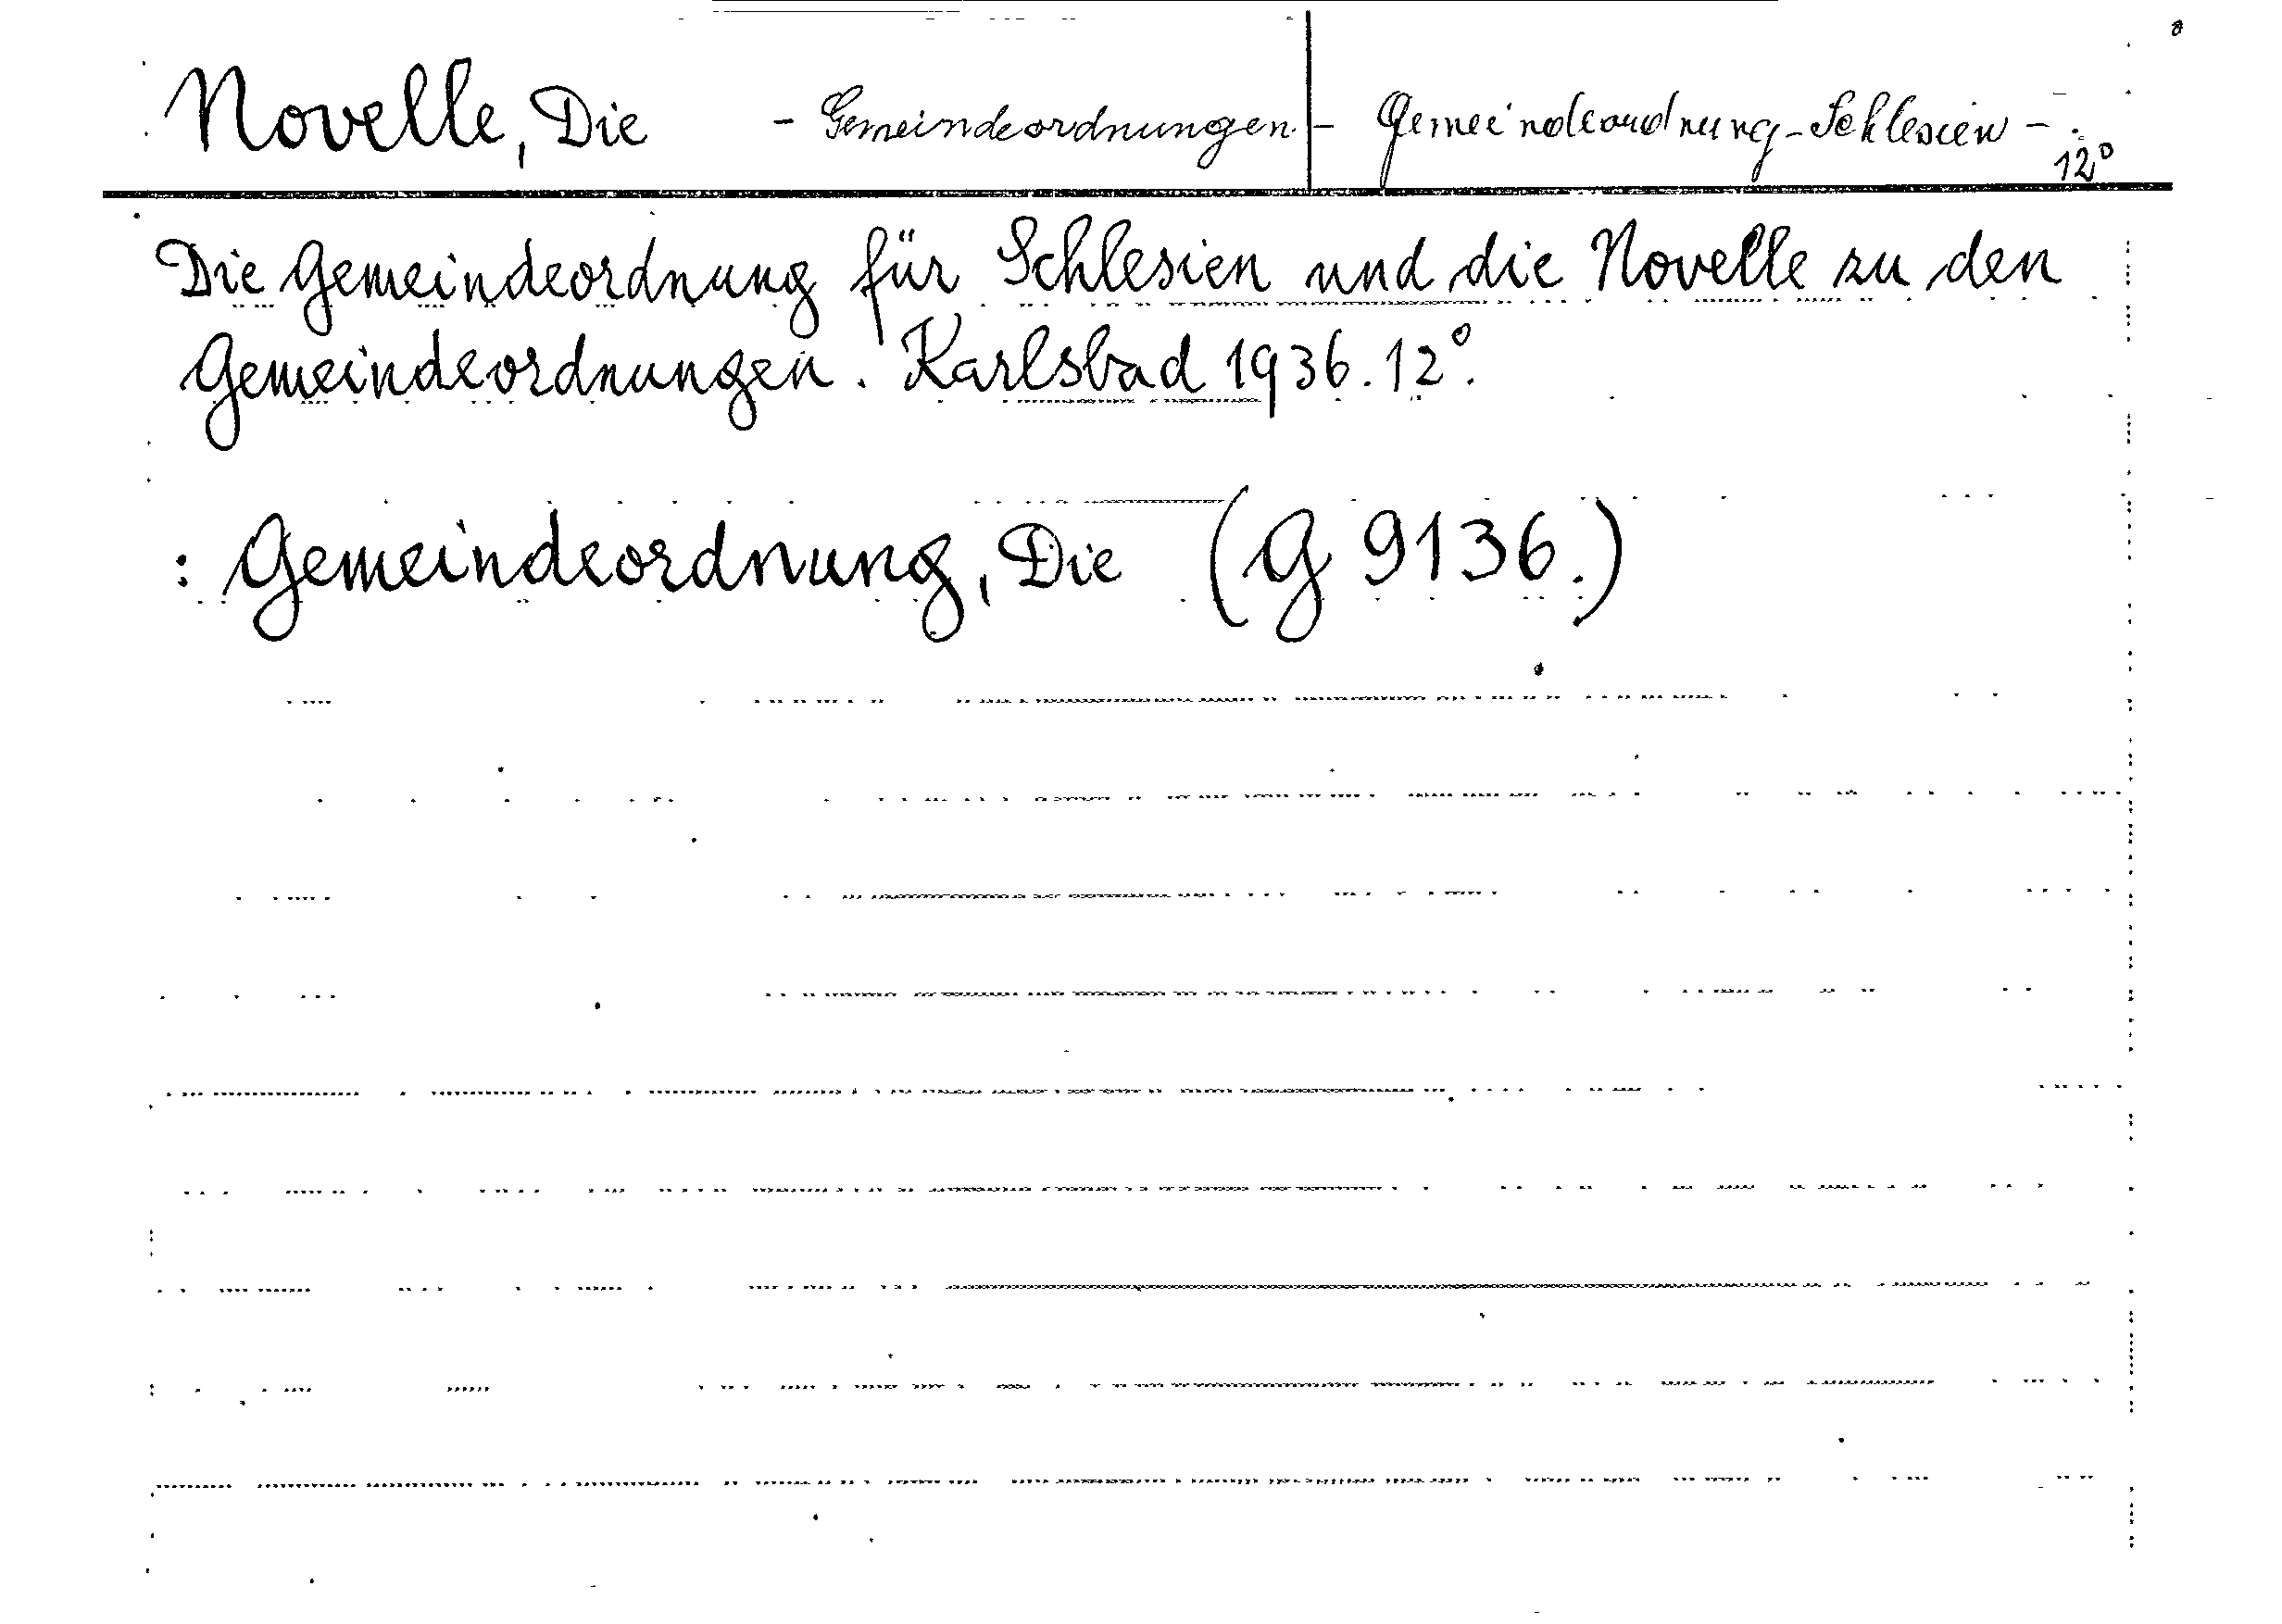 Novelle, Die - Gemeindeordnungen. - Gemeindeordnung-Schlesien -
12°
Die Gemeindeordnung für Schlesien und die Novelle zu den
Gemeindeordnungen. Karlsbad 1936. 12°.
: Gemeindeordnung, Die (G 9136.)